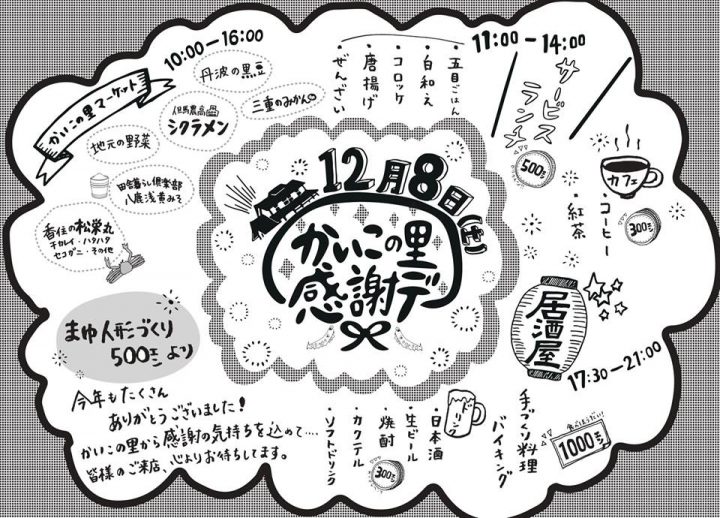 10:00ー16:00
かいこの里マーケット
丹波の黒豆
但馬農高
シクラメン
三重のみかん
地元の野菜
田舎暮らし倶楽部
八鹿浅黄みそ
香住の松栄丸
チカレイ・ハタハタ
セコガニ・その他
まゆ人形づくり
500えんより
・五目ごはん
・白和え
・コロッケ
・唐揚げ
・ぜんざい
11:00ー14:00
サービス
ランチ
500えん
カフェ
・コーヒー
・紅茶
300えん
12月8日(土)
かいこの里
感謝デー
居酒屋
17:30ー21:00
手づくり料理
バイキング
食べほうだい!
1000えん
ドリンク
・日本酒
・生ビール
・焼酎
・カクテル
・ソフトドリンク
300えん
今年もたくさん
ありがとうございました!
かいこの里から感謝の気持ちを込めて....
皆様のご来店、心よりお待ちしてます。